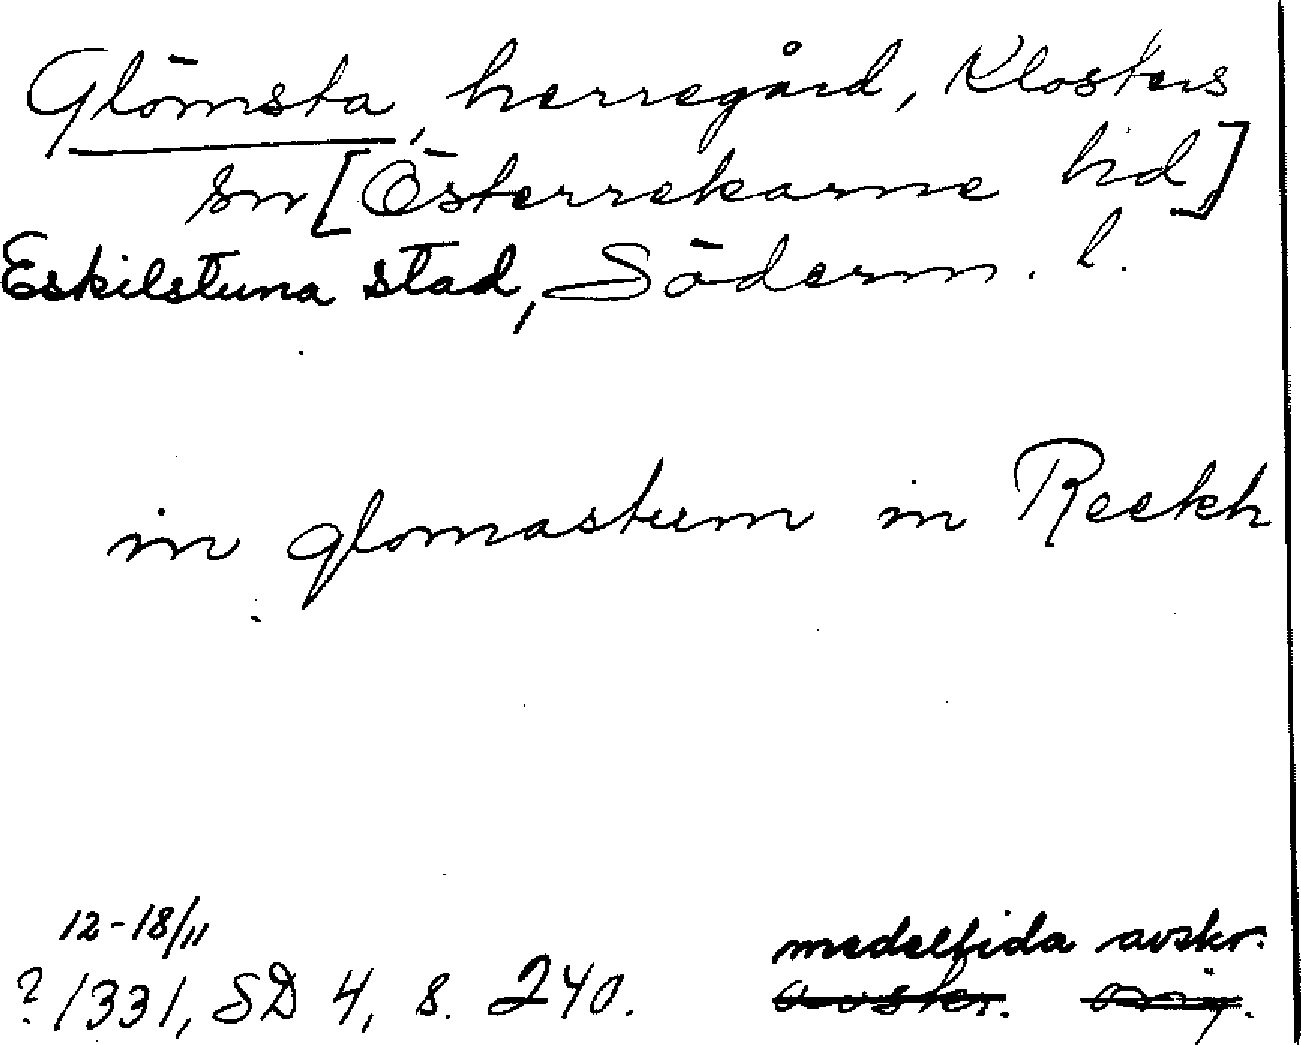 Glömsta, herregård, Klosters
sn [Österrekarne hd]
Eskilstuna stad, Söderm. l.
in glomastum in Reekh
12-18/11
? 1331, SD 4, s. 240.
medeltida avskr.
avskr. orig.